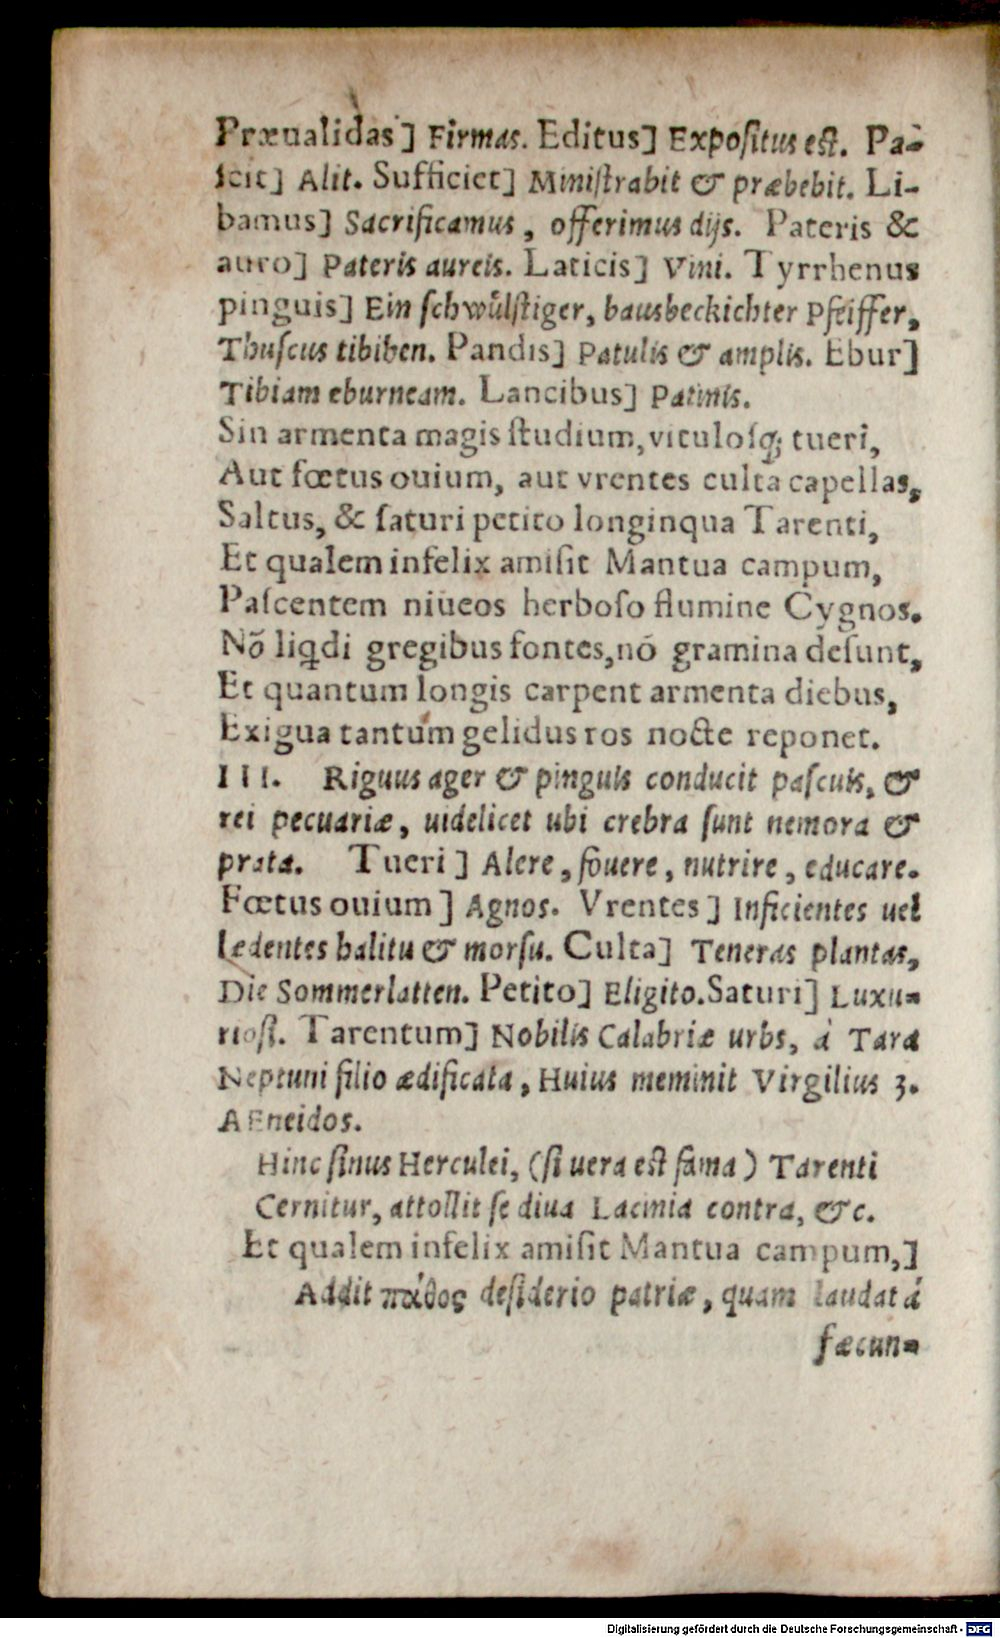 Præualidas] Firmas. Editus] Expositus est. Pa-
scit] Alit. Sufficiet] Ministrabit & præbebit. Li-
bamus] Sacrificamus, offerimus dijs. Pateris &
auro] Pateris aureis. Laticis] Vini. Tyrrhenus
pinguis] Ein schwůlstiger, bausbeckichter Pfeiffer,
Thuscus tibihen. Pandis] Patulis & amplis. Ebur]
Tibiam eburneam. Lancibus] Patinis.
Sin armenta magis studium, vitulosq; tueri,
Aut fœtus ouium, aut vrentes culta capellas,
Saltus, & saturi petito longinqua Tarenti,
Et qualem infelix amisit Mantua campum,
Pascentem niueos herboso flumine Cygnos.
Nõ liqdi gregibus fontes, nõ gramina desunt,
Et quantum longis carpent armenta diebus,
Exigua tantum gelidus ros nocte reponet.
III. Riguus ager & pinguis conducit pascuis, &
rei pecuariæ, uidelicet ubi crebra sunt nemora &
prata. Tueri] Alere, fouere, nutrire, educare.
Fœtus ouium] Agnos. Vrentes] Inficientes uel
lædentes halitu & morsu. Culta] Teneras plantas,
Die Sommerlatten. Petito] Eligito. Saturi] Luxu-
riosi. Tarentum] Nobilis Calabriæ urbs, à Tara
Neptuni filio ædificata, Huius meminit Virgilius 3.
AEneidos.
Hinc sinus Herculei, (si uera est fama) Tarenti
Cernitur, attollit se diua Lacinia contra, &c.
Et qualem infelix amisit Mantua campum,]
Addit πάθος desiderio patriæ, quam laudat á
fæcun-
Digitalisierung gefördert durch die Deutsche Forschungsgemeinschaft - DFG